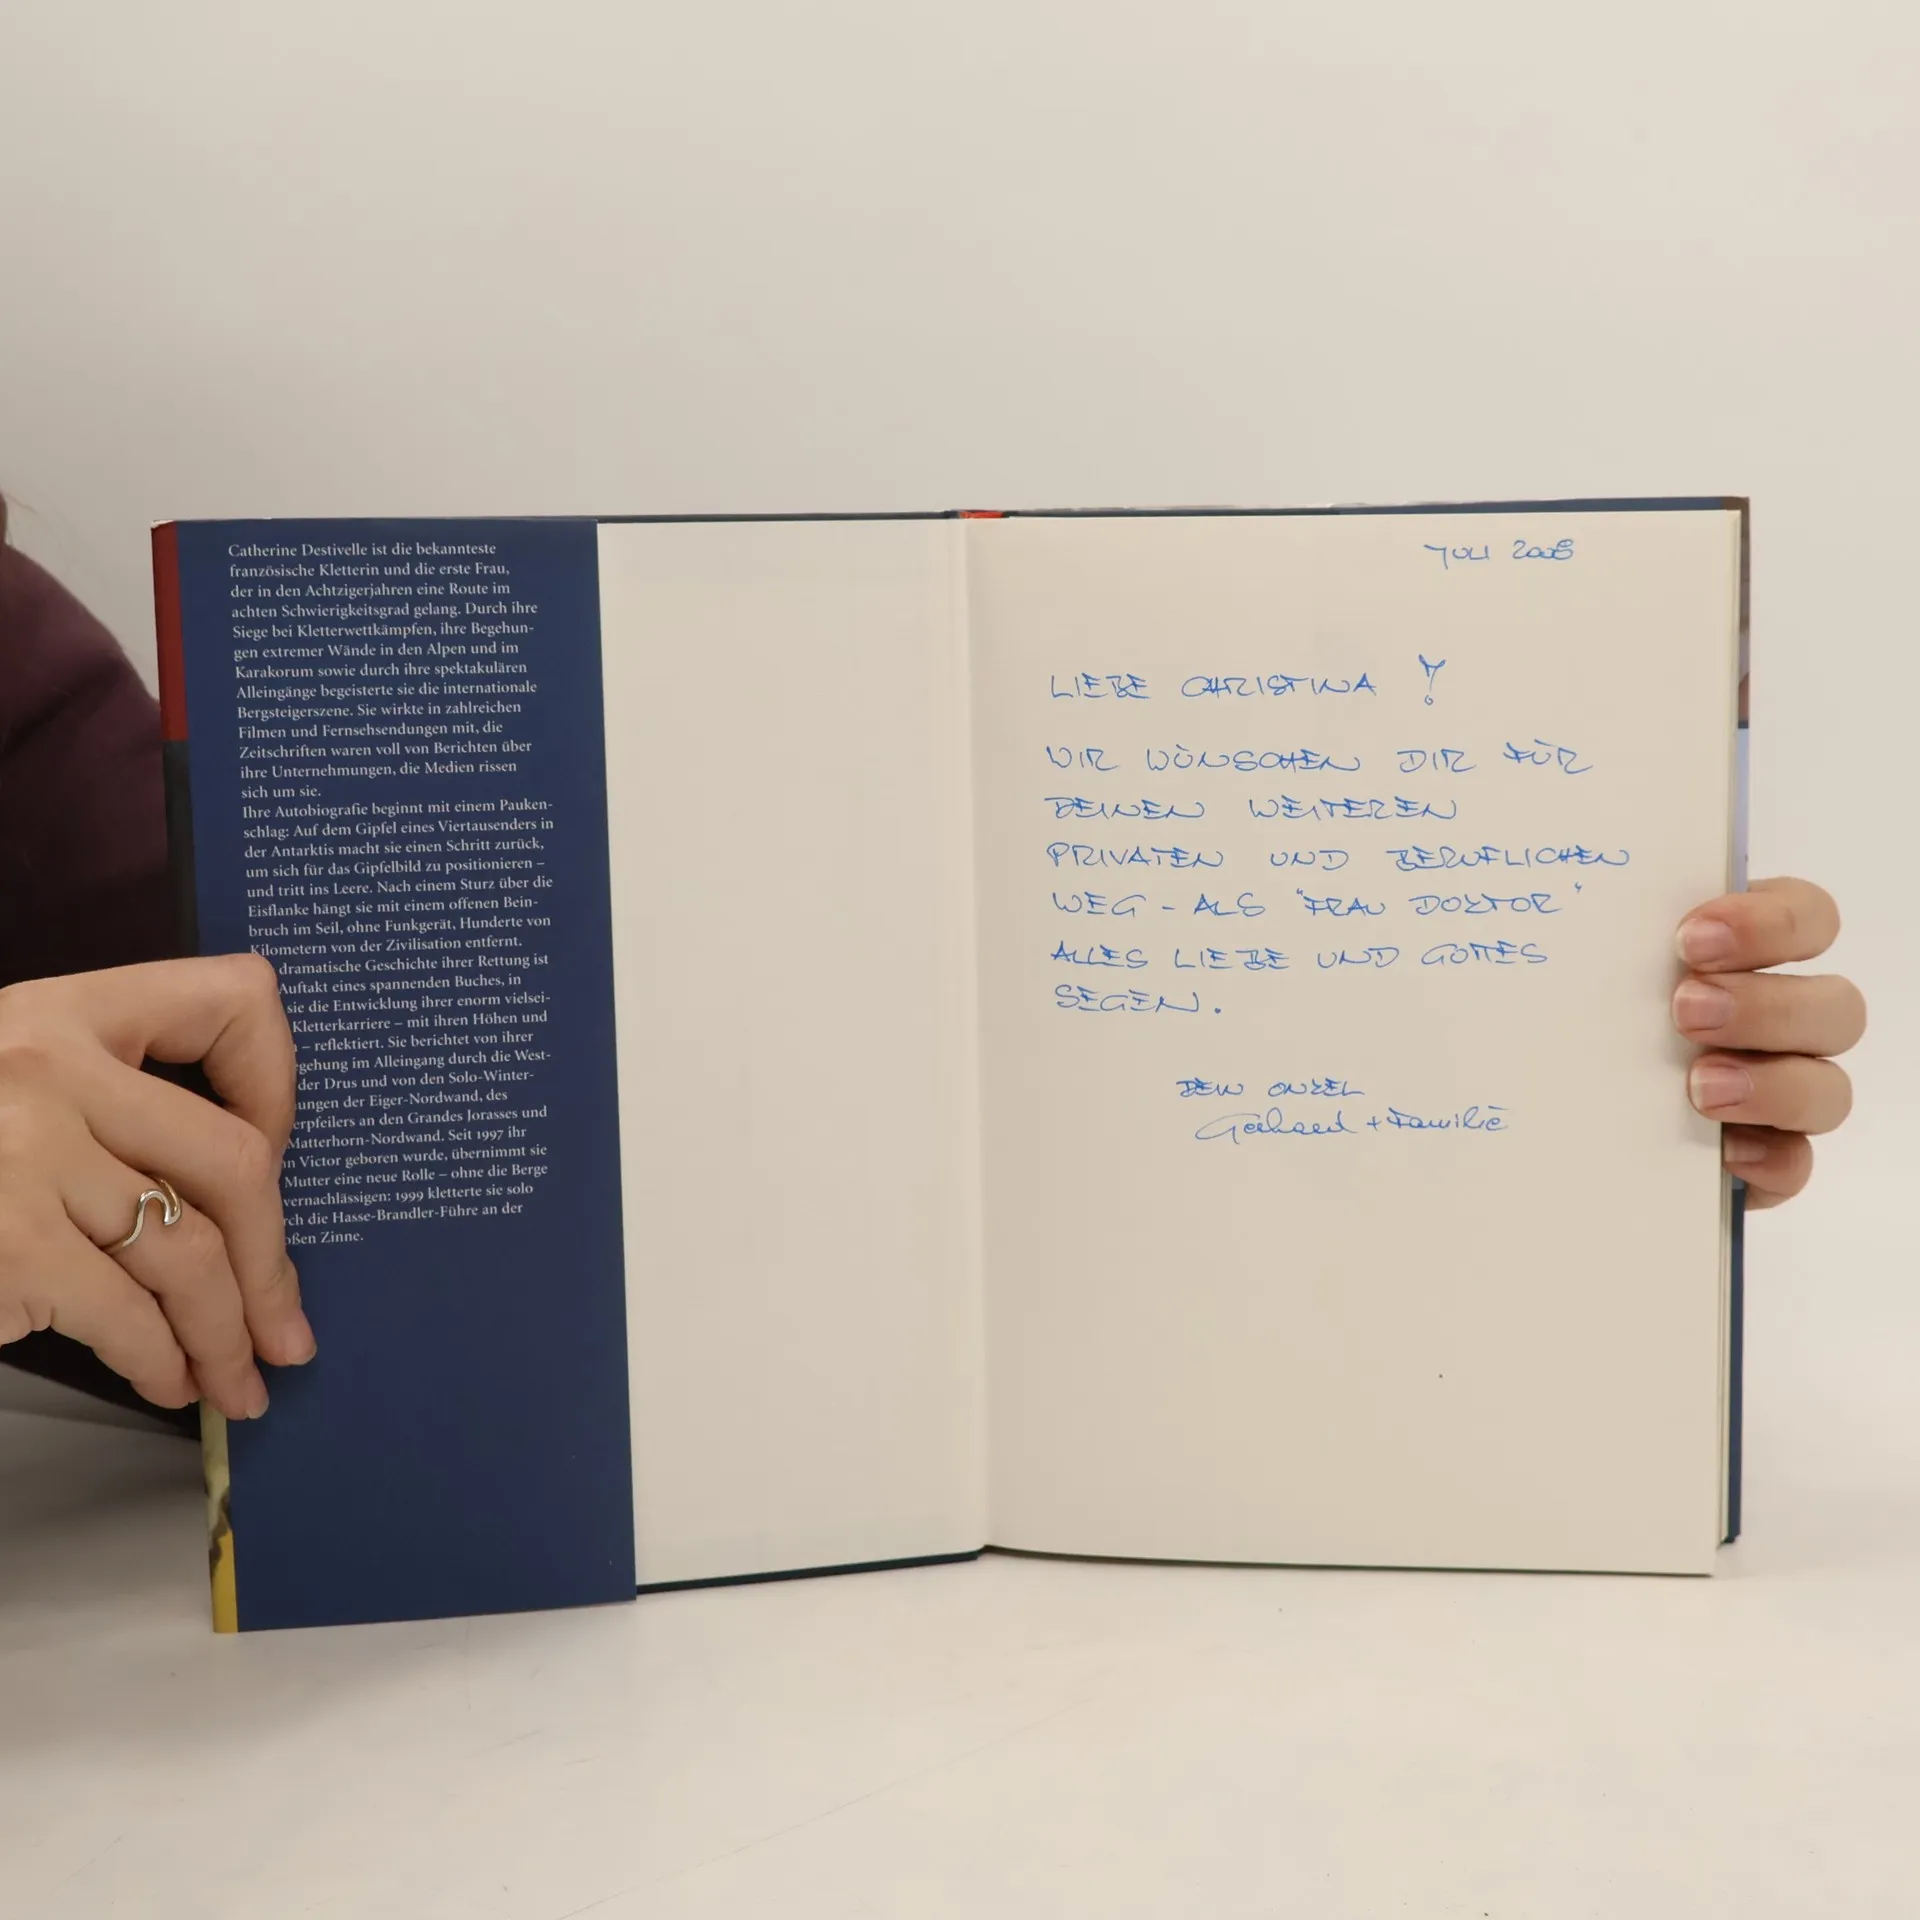 Catherine Destivelle ist die bekannteste
französische Kletterin und die erste Frau,
der in den Achtzigerjahren eine Route im
achten Schwierigkeitsgrad gelang. Durch ihre
Siege bei Kletterwettkämpfen, ihre Begehun-
gen extremer Wände in den Alpen und im
Karakorum sowie durch ihre spektakulären
Alleingänge begeisterte sie die internationale
Bergsteigerszene. Sie wirkte in zahlreichen
Filmen und Fernsehsendungen mit, die
Zeitschriften waren voll von Berichten über
ihre Unternehmungen, die Medien rissen
sich um sie.
Ihre Autobiografie beginnt mit einem Pauken-
schlag: Auf dem Gipfel eines Viertausenders in
der Antarktis macht sie einen Schritt zurück,
um sich für das Gipfelbild zu positionieren –
und tritt ins Leere. Nach einem Sturz über die
Eisflanke hängt sie mit einem offenen Bein-
bruch im Seil, ohne Funkgerät, Hunderte von
Kilometern von der Zivilisation entfernt.
dramatische Geschichte ihrer Rettung ist
Auftakt eines spannenden Buches, in
sie die Entwicklung ihrer enorm vielsei-
Kletterkarriere – mit ihren Höhen und
– reflektiert. Sie berichtet von ihrer
gehung im Alleingang durch die West-
der Drus und von den Solo-Winter-
ungen der Eiger-Nordwand, des
erpfeilers an den Grandes Jorasses und
Matterhorn-Nordwand. Seit 1997 ihr
n Victor geboren wurde, übernimmt sie
Mutter eine neue Rolle – ohne die Berge
vernachlässigen: 1999 kletterte sie solo
rch die Hasse-Brandler-Führe an der
oßen Zinne.
JULI 2008
LIEBE CHRISTINA !
WIR WÜNSCHEN DIR FÜR
DEINEN WEITEREN
PRIVATEN UND BERUFLICHEN
WEG - ALS "FRAU DOKTOR"
ALLES LIEBE UND GOTTES
SEGEN.
DEIN ONKEL
Gerhard + Familie